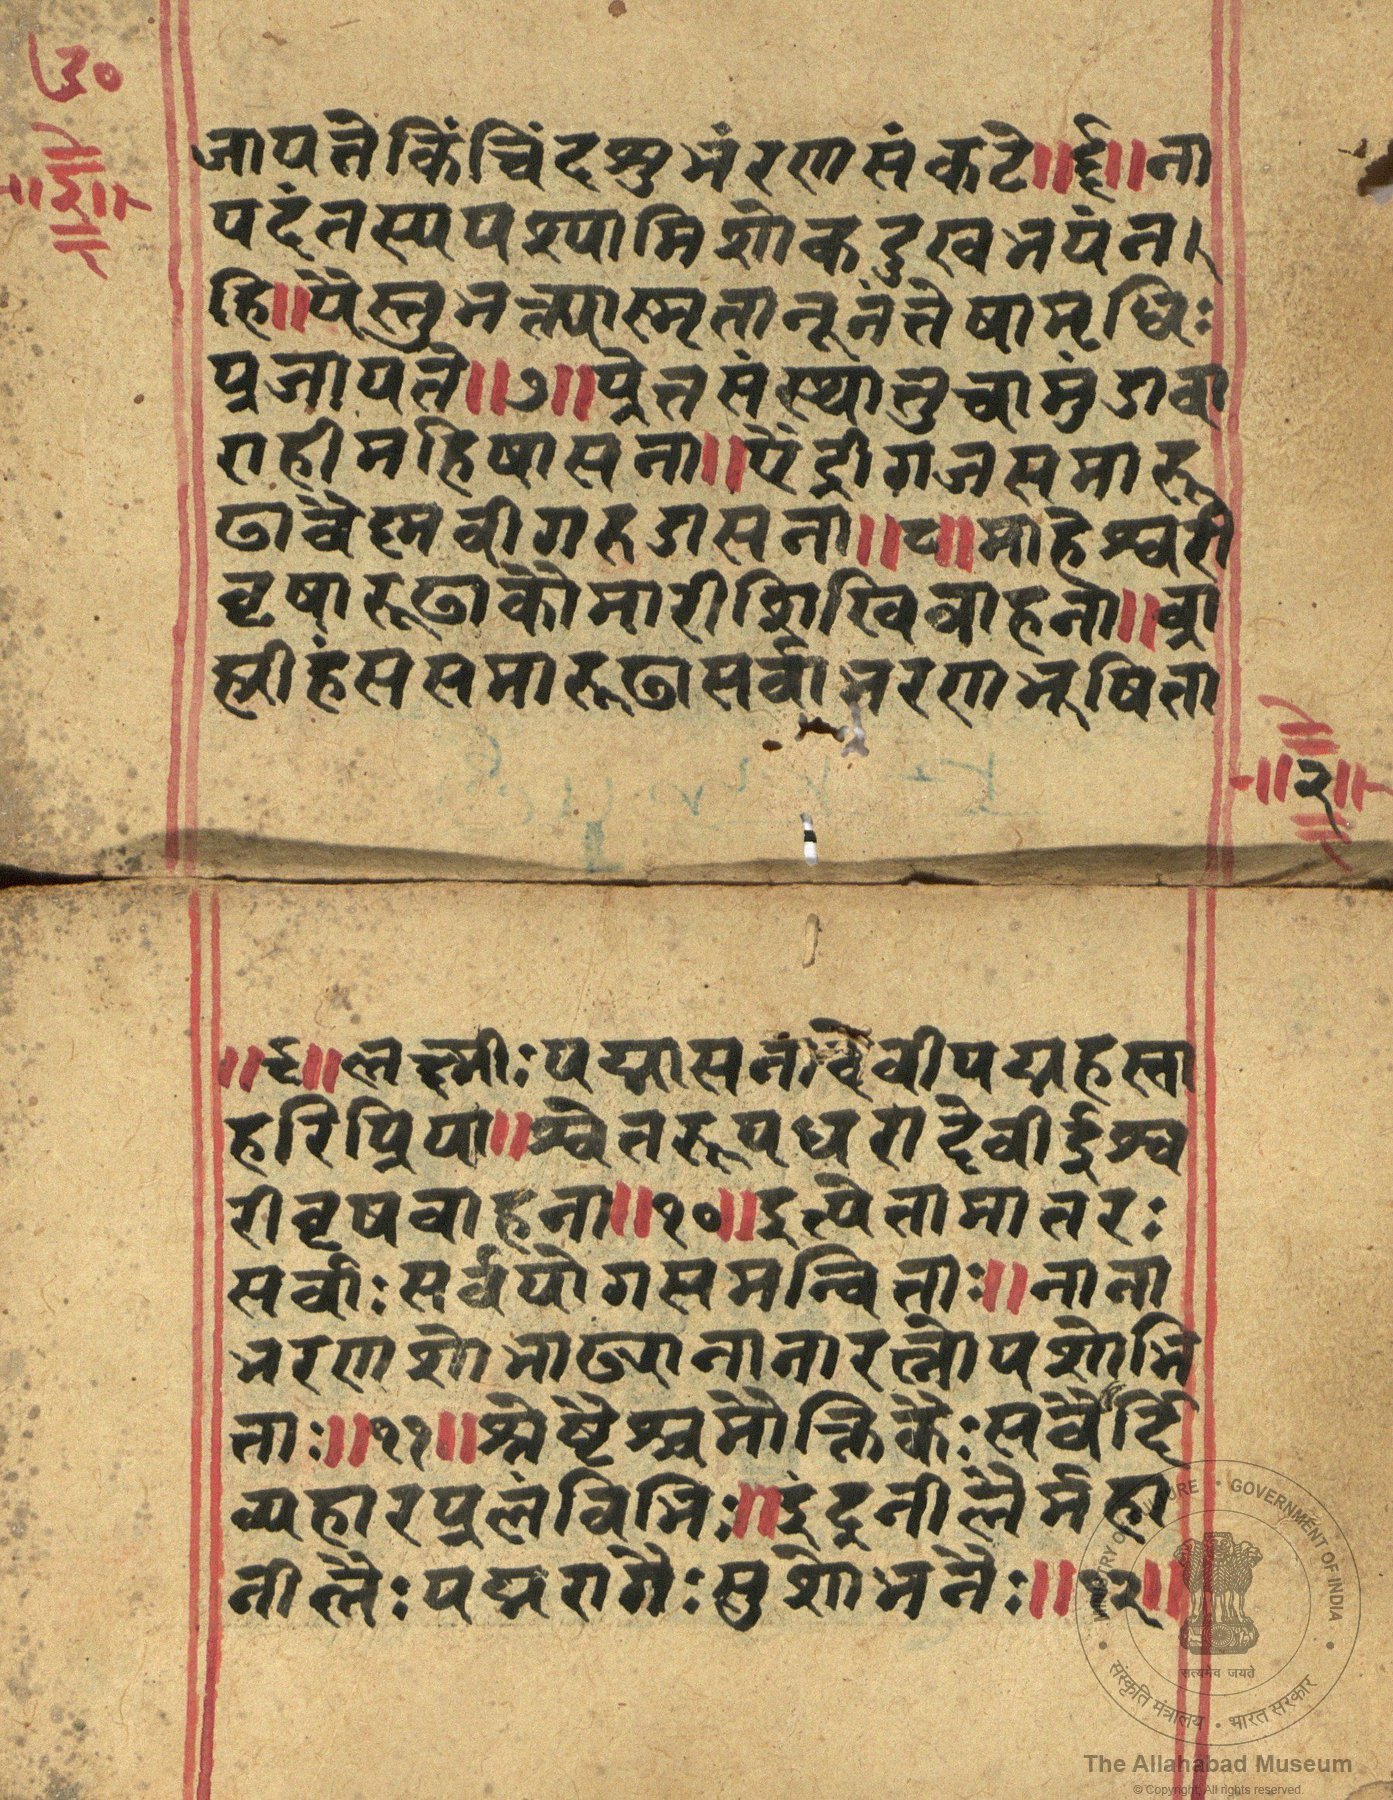 ७०
॥२॥
जायते किंचिदशुभं रणसंकटे॥६॥ना
पदं तस्य पश्यामि शोकदुखभयं न
हि॥यैस्तु भक्त्या स्मृता नूनं तेषामृधिः
प्रजायते॥७॥प्रेतसंस्था तु चामुंडा वा
राही महिषासना॥ऐंद्री गजसमारू
ढा वैष्णवी गरुडासना॥८॥माहेश्वरी
वृषारूढा कौमारी शिखिवाहना॥ब्रा
ह्मी हंससमारूढा सर्वाभरणभूषिता
॥२॥
॥९॥लक्ष्मीः पद्मासना देवी पद्महस्ता
हरिप्रिया॥श्वेतरूपधरा देवी ईश्व
री वृषवाहना॥१०॥इत्येता मातरः
सर्वाः सर्वयोगसमन्विताः॥नाना
भरणशोभाढ्या नानारत्नोपशोभि
ताः॥११॥श्रेष्ठैश्च मौक्तिकैः सर्वैर्दि
व्यहारप्रलंविभिः॥इंद्रनीलैर्महा
नीलैः पद्मरागैः सुशोभनैः॥१२॥
MINISTRY OF CULTURE · GOVERNMENT OF INDIA
सत्यमेव जयते
संस्कृति मंत्रालय · भारत सरकार
The Allahabad Museum
© Copyright. All rights reserved.